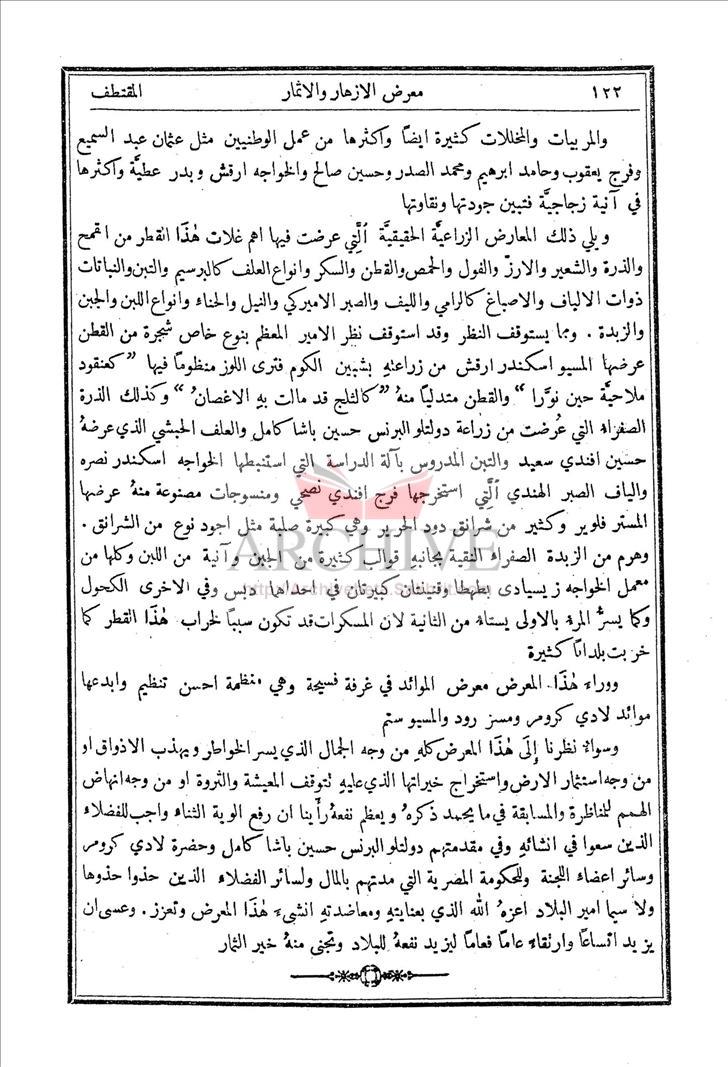 ١٢٢ معرض الازهار والاثمار المقتطف
والمربيات والمخللات كثيرة ايضاً واكثرها من عمل الوطنيين مثل عثمان عبد السميع
وفرج يعقوب وحامد ابرهيم ومحمد الصدر وحسين صالح والخواجه ارقش وبدر عطيَّة واكثرها
في آنية زجاجيَّة فتبين جودتها ونقاوتها
ويلي ذلك المعارض الزراعيَّة الحقيقيَّة الَّتي عرضت فيها اهم غلات هٰذا القطر من القمح
والذرة والشعير والارزّ والفول والحمص والقطن والسكر وانواع العلف كالبرسيم والتبن والنباتات
ذوات الالياف والاصباغ كالرامي والليف والصبر الاميركي والنيل والحناء وانواع اللبن والجبن
والزبدة . ومما يستوقف النظر وقد استوقف نظر الامير المعظم بنوع خاص شجرة من القطن
عرضها المسيو اسكندر ارقش من زراعته بشبين الكوم فترى اللوز منظوماً فيها " كعنقود
ملاحيَّة حين نوَّرا " والقطن متدلياً منهُ " كالثلج قد مالت بهِ الاغصانُ " وكذلك الذرة
الصفراء التي عُرضت من زراعة دولتلو البرنس حسين باشا كامل والعلف الحبشي الذي عرضهُ
حسين افندي سعيد والتبن المدروس بآلة الدراسة التي استنبطها الخواجه اسكندر نصره
والياف الصبر الهندي الَّتي استخرجها فرج افندي نصحي ومنسوجات مصنوعة منهُ عرضها
المستر فلوير وكثير من شرانق دود الحرير وهي كبيرة صلبة مثل اجود نوع من الشرانق .
وهرم من الزبدة الصفراء النقية بجانبهِ قوالب كثيرة من الجبن وآنية من اللبن وكلها من
معمل الخواجه زيسيادى بطهطا وقنينتان كبيرتان في احداها دبس وفي الاخرى الكحول
وكما يسرُّ المرء بالاولى يستاء من الثانية لان المسكرات قد تكون سبباً لخراب هٰذا القطر كما
خربت بلداناً كثيرة
ووراء هٰذا المعرض معرض الموائد في غرفة فسيحة وهي منظمة احسن تنظيم وابدعها
موائد لادي كرومر ومسز رود والمسيو ستم
وسواءٌ نظرنا إِلى هٰذا المعرض كلهِ من وجه الجمال الذي يسر الخواطر ويهذب الاذواق او
من وجه استثمار الارض واستخراج خيراتها الذي عليهِ تتوقف المعيشة والثروة او من وجه انهاض
الهمم للمناظرة والمسابقة في ما يحمد ذكرهُ ويعظم نفعهُ رأينا ان رفع الوية الثناء واجب للفضلاء
الذين سعوا في انشائهِ وفي مقدمتهم دولتلو البرنس حسين باشا كامل وحضرة لادي كرومر
وسائر اعضاء اللجنة وللحكومة المصرية التي مدتهم بالمال ولسائر الفضلاء الذين حذوا حذوها
ولا سيما امير البلاد اعزهُ الله الذي بعنايتهِ ومعاضدتهِ انشئ هٰذا المعرض وتعزز . وعسى ان
يزيد اتساعاً وارتقاءً عاماً فعاماً ليزيد نفعهُ للبلاد وتجنى منهُ خير الثمار
ARCHIVE